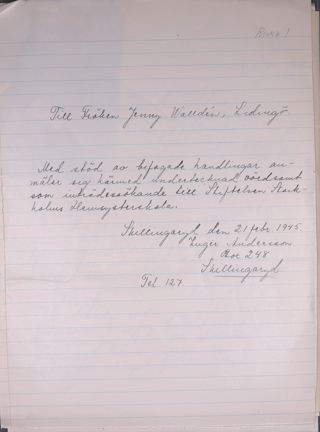 Till Fröken Jenny Walldén, Lidingö
Med stöd av bifogade handlingar an-
mäler sig härmed undertecknad vördsamt
som inträdessökande till Stiftelsen Stock-
holms Hemsysterskola.
Skillingaryd den 21 febr. 1945.
Inger Andersson
Box 248
Skillingaryd
Tel. 127